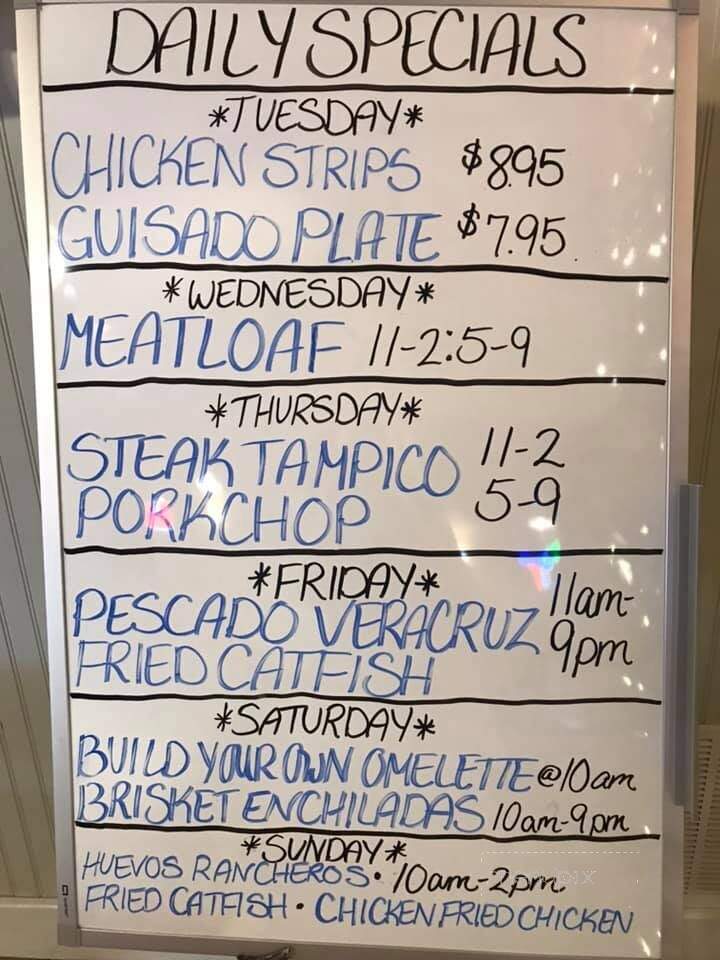 DAILY SPECIALS
*TUESDAY*
CHICKEN STRIPS $8.95
GUISADO PLATE $7.95
*WEDNESDAY*
MEATLOAF 11-2:5-9
*THURSDAY*
STEAK TAMPICO 11-2
PORKCHOP 5-9
*FRIDAY*
PESCADO VERACRUZ 11am-
FRIED CATFISH 9pm
*SATURDAY*
BUILD YOUR OWN OMELETTE @10am
BRISKET ENCHILADAS 10am-9pm
*SUNDAY*
HUEVOS RANCHEROS • 10am-2pm
FRIED CATFISH • CHICKEN FRIED CHICKEN